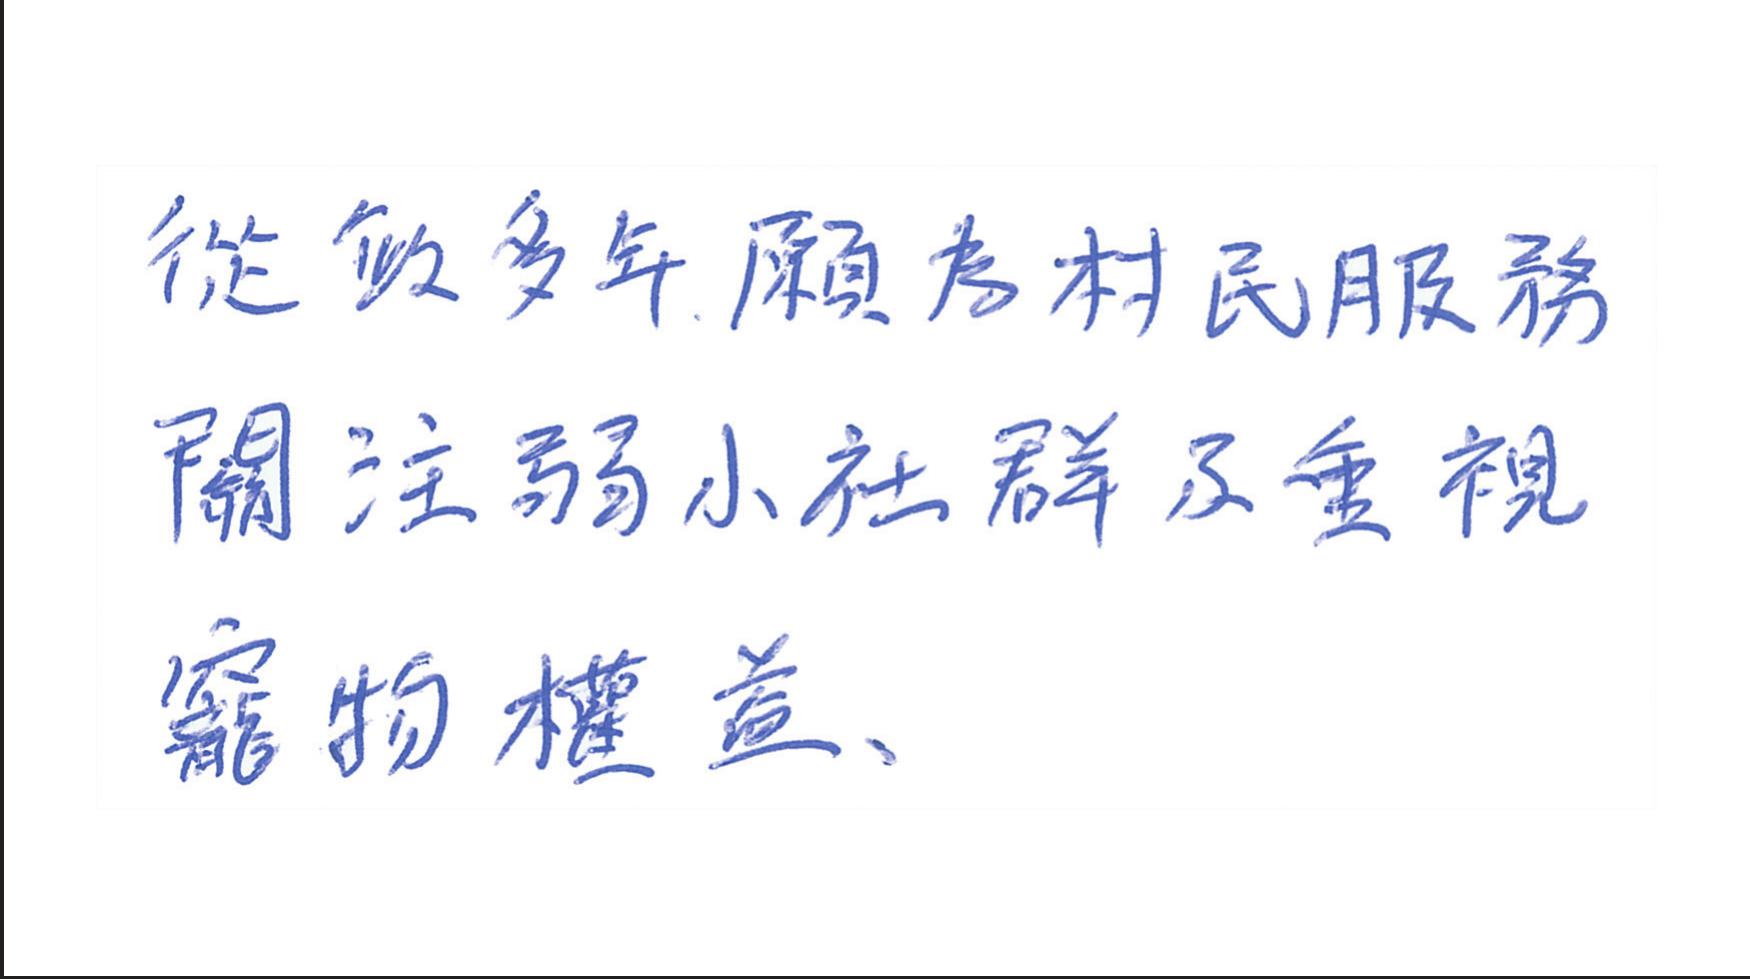 從政多年.願為村民服務
關注弱小社群及重視
寵物權益、